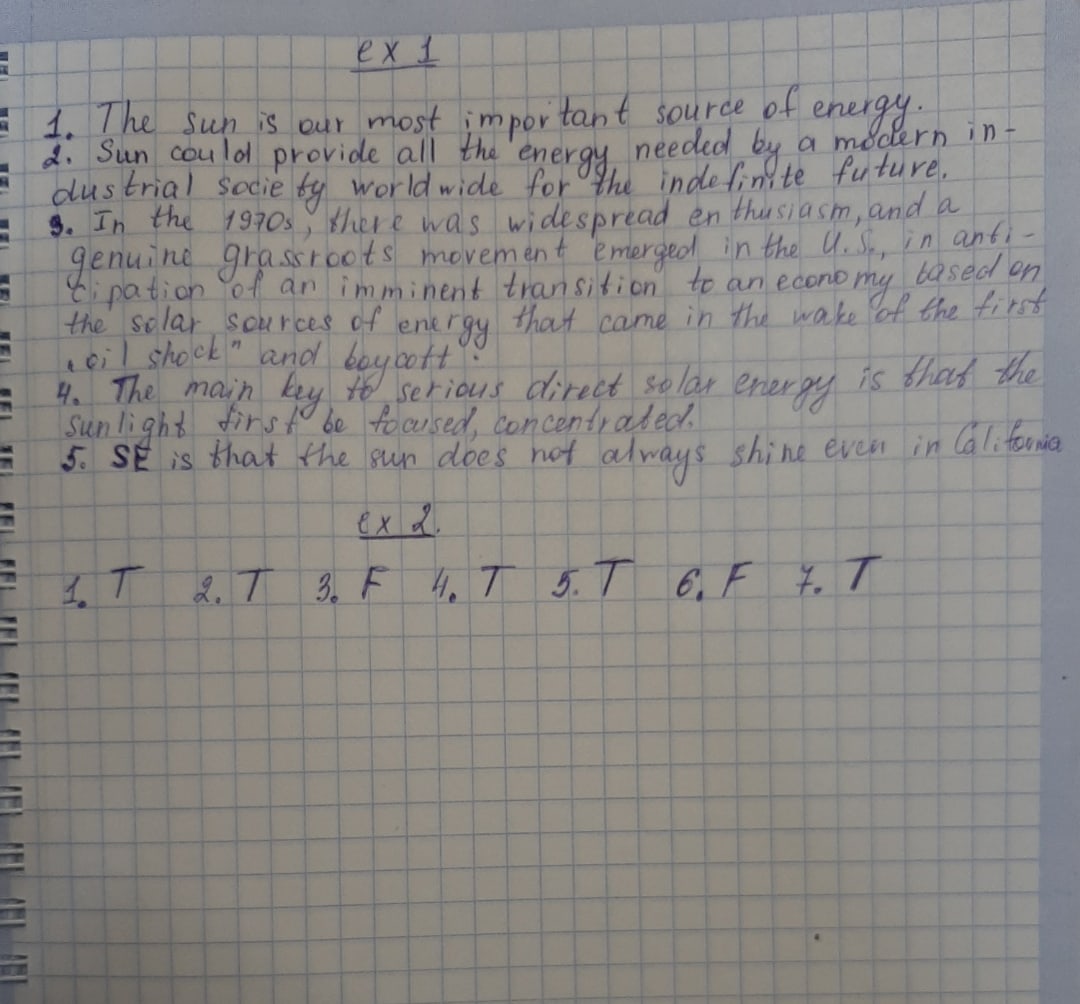 ex 1
1. The sun is our most important source of energy.
2. Sun could provide all the energy needed by a modern in-
dustrial society worldwide for the indefinite future.
3. In the 1970s, there was widespread enthusiasm, and a
genuine grassroots movement emerged in the U.S., in anti-
cipation of an imminent transition to an economy based on
the solar sources of energy that came in the wake of the first
„oil shock" and boycott.
4. The main key to serious direct solar energy is that the
sunlight first be focused, concentrated.
5. SE is that the sun does not always shine even in California
ex 2.
1. T 2. T 3. F 4. T 5. T 6. F 7. T